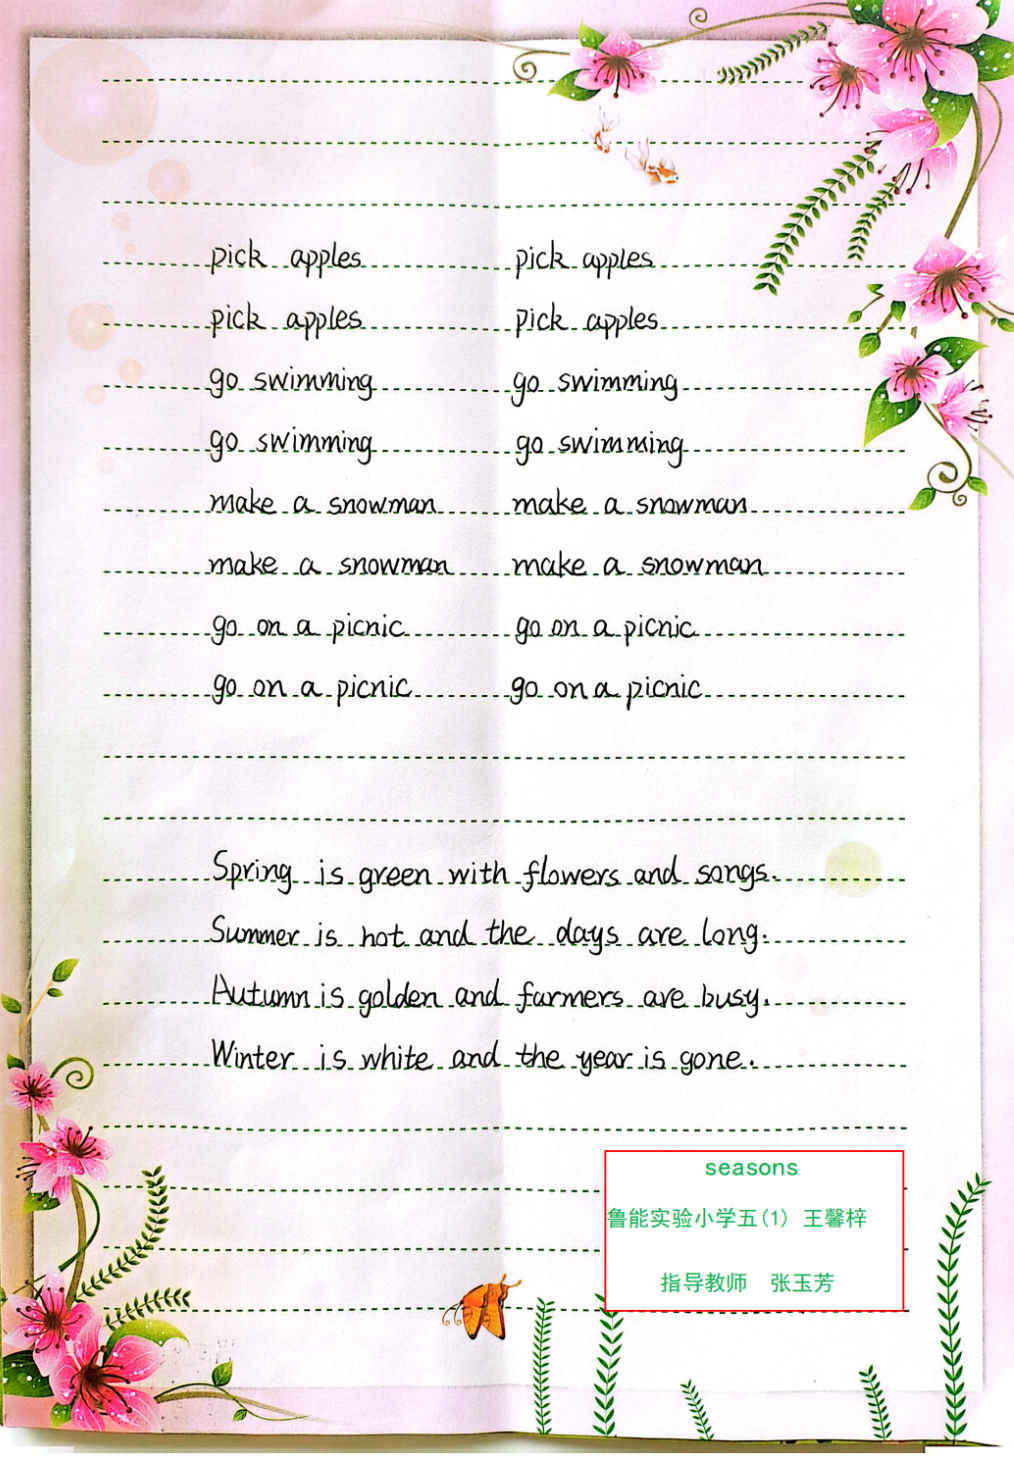 pick apples pick apples
pick apples pick apples
go swimming go swimming
go swimming go swimming
make a snowman make a snowman
make a snowman make a snowman
go on a picnic go on a picnic
go on a picnic go on a picnic
Spring is green with flowers and songs.
Summer is hot and the days are long.
Autumn is golden and farmers are busy.
Winter is white and the year is gone.
seasons
鲁能实验小学五(1) 王馨梓
指导教师 张玉芳